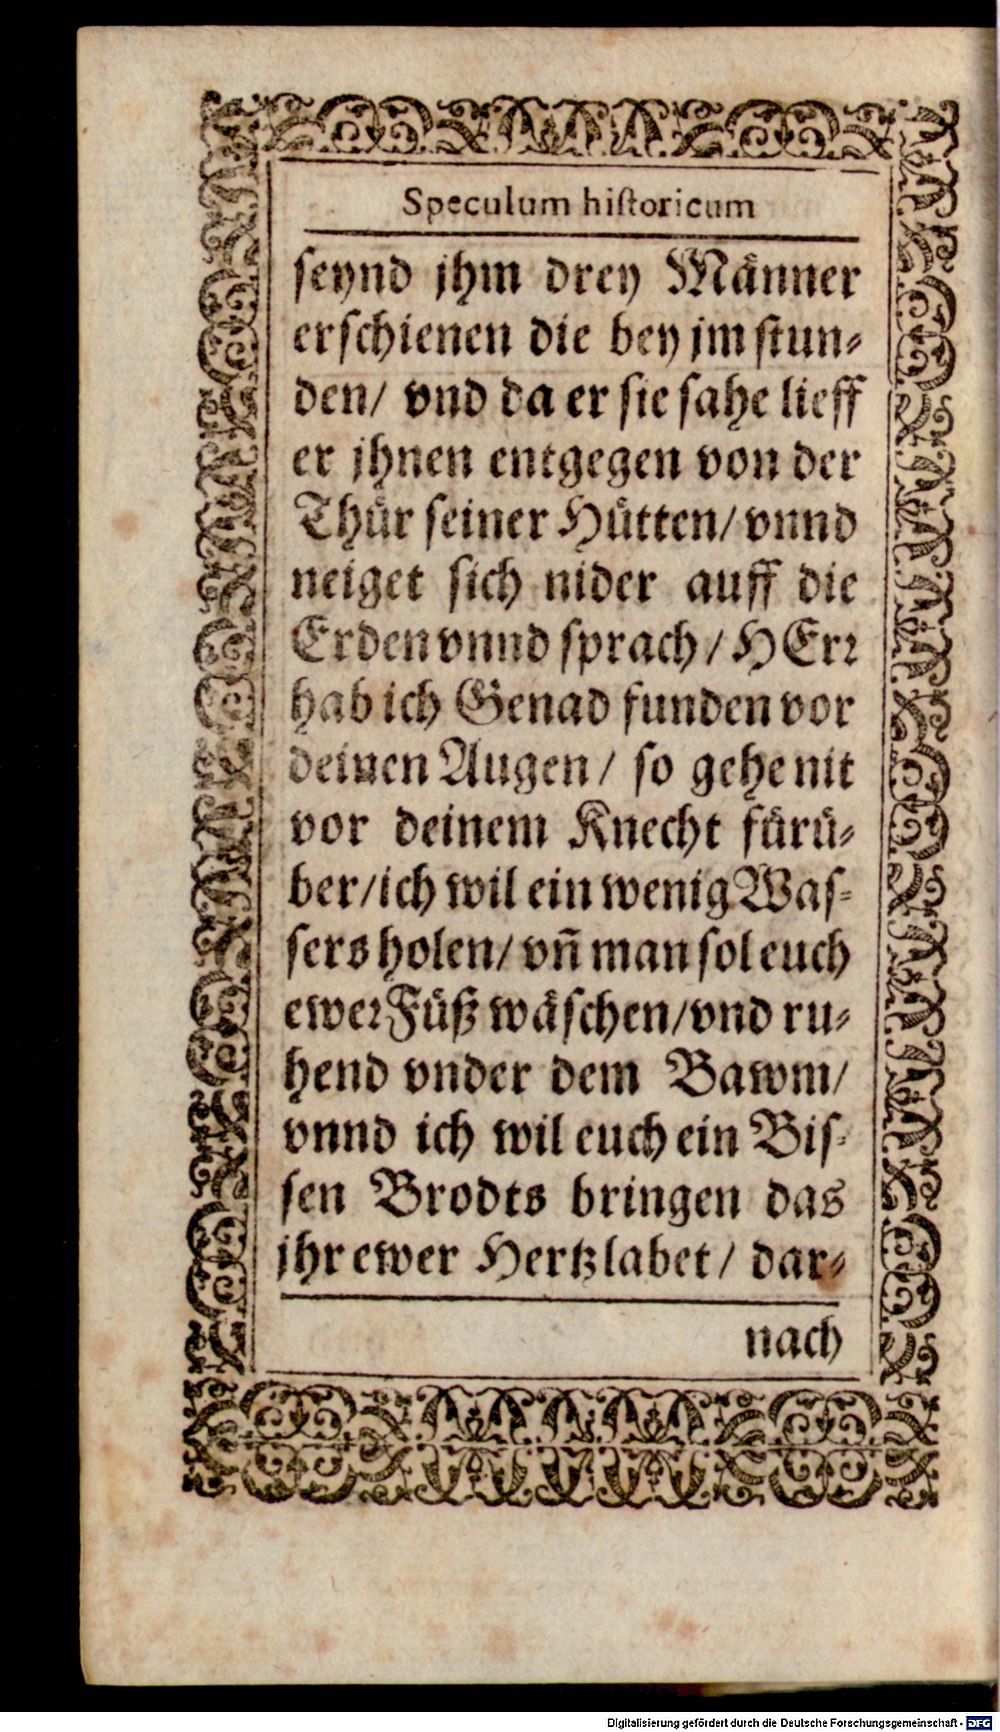 Speculum hiſtoricum
ſeynd jhm drey Maͤnner
erſchienen die bey jm ſtun⸗
den/ vnd da er ſie ſahe lieff
er jhnen entgegen von der
Thuͤr ſeiner Huͤtten/ vnnd
neiget ſich nider auff die
Erden vnnd ſprach / HErꝛ
hab ich Genad funden vor
deinen Augen / ſo gehe nit
vor deinem Knecht fuͤruͤ⸗
ber/ich wil ein wenig Waſ⸗
ſers holen/ vñ man ſol euch
eweꝛ Fuͤß waͤſchen/vnd ru⸗
hend vnder dem Bawm/
vnnd ich wil euch ein Biſ⸗
ſen Brodts bringen das
jhr ewer Hertz labet / dar⸗
nach
Digitalisierung gefördert durch die Deutsche Forschungsgemeinschaft - DFG